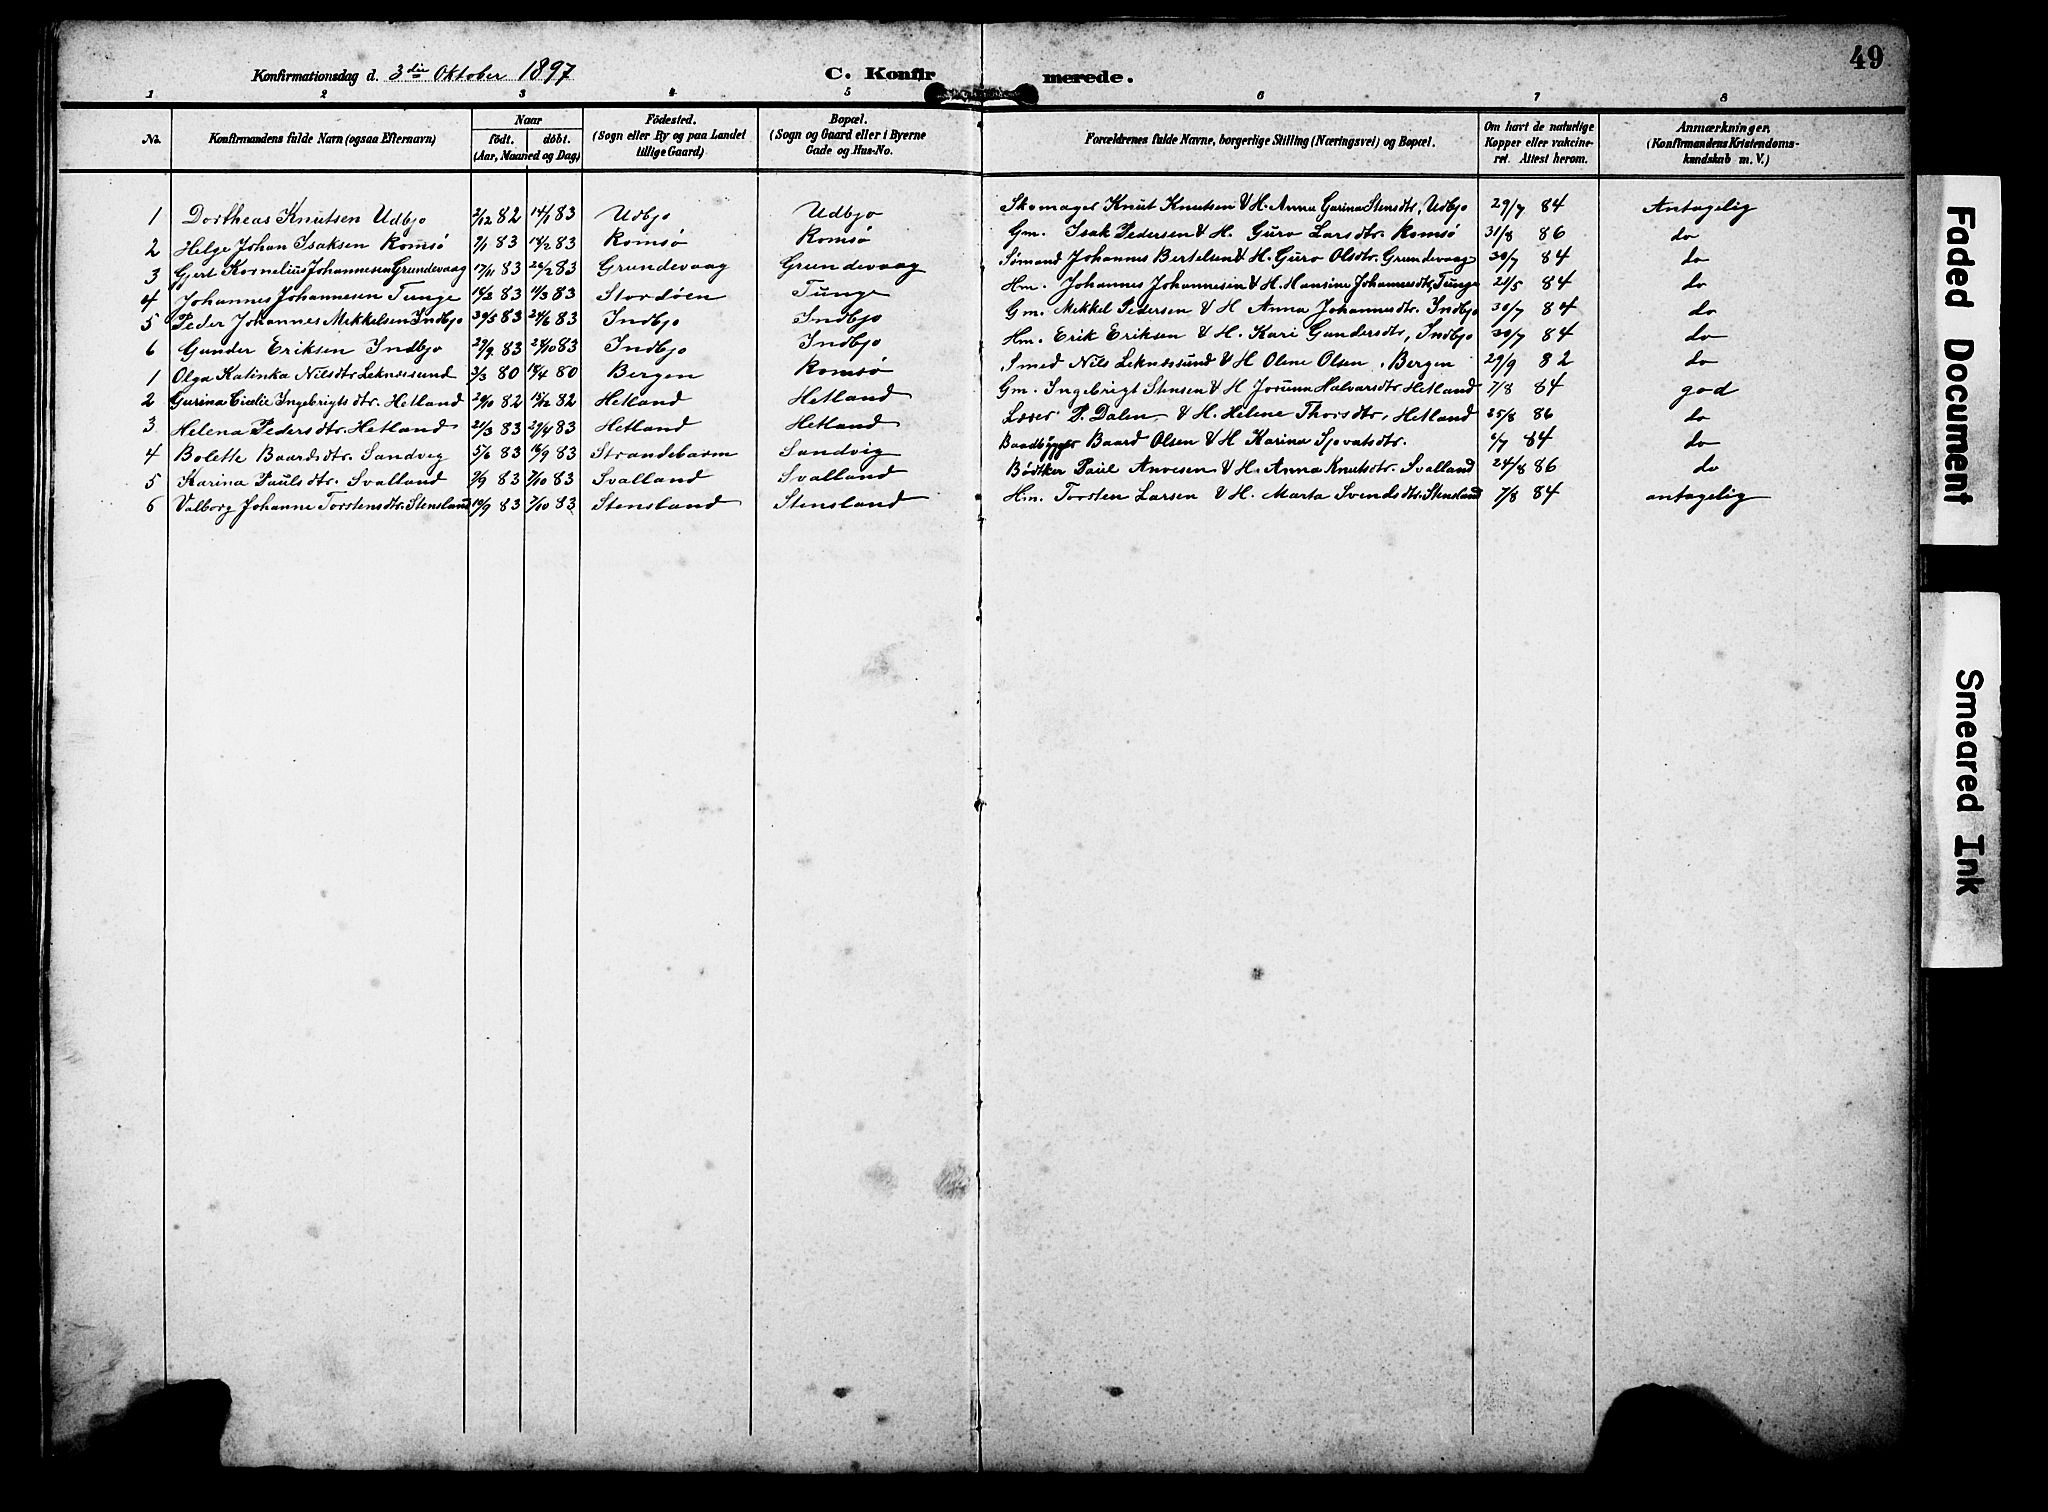 49
Konfirmationsdag d. 3die Oktober 1897 C. Konfirmerede.
1 2 3 4 5 6 7 8
No. Konfirmandens fulde Navn (ogsaa Efternavn) Naar født. døbt. (Aar, Maaned og Dag) Födested. (Sogn eller By og paa Landet tillige Gaard) Bopæl. (Sogn og Gaard eller i Byerne Gade og Hus-No. Forældrenes fulde Navne, borgerlige Stilling (Næringsvei) og Bopæl. Om havt de naturlige Kopper eller vakcineret. Attest herom. Anmærkninger. (Konfirmandens Kristendomskundskab m. V.)
1 Dortheas Knutsen Udbjo 2/12 82 14/1 83 Udbjo Udbjo Skomager Knut Knutsen & H. Anna Gurina Stensdtr, Udbjo 29/7 84 Antagelig
2 Helge Johan Isaksen Romsø 7/1 83 18/2 83 Romsø Romsø Gm. Isak Pedersen & H. Guro Larsdtr. Romsø 31/8 86 do
3 Gert Kornelius Johannesen Grundevaag 17/1 83 26/2 83 Grundevaag Grundevaag Sømand Johannes Bertelsen & H. Guro Olsdtr. Grundevaag 30/7 84 do
4 Johannes Johannesen Tunge 18/2 83 11/3 83 Stordøen Tunge Hm. Johannes Johannesen & H. Hansine Johannesdtr, Tunge 21/5 84 do
5 Peder Johannes Mikkelsen Indbjo 30/5 83 24/6 83 Indbjo Indbjo Gm. Mikkel Pedersen & H Anna Johannesdtr. Indbjo 30/7 84 do
6 Gunder Eriksen Indbjo 29/9 83 28/10 83 Indbjo Indbjo Hm. Erik Eriksen & H. Kari Gundersdtr, Indbjo 30/7 84 do
1 Olga Katinka Nilsdtr Leknessund 3/3 80 18/4 80 Bergen Romsø Smed Nils Leknessund & H Oline Olsen, Bergen 29/9 82 do
2 Gurina Cicilie Ingebrigtsdtr. Hetland 29/10 82 10/12 82 Hetland Hetland Gm. Ingebrigt Stensen & H Jorunn Halvarsdtr Hetland 7/8 84 god
3 Helena Pedersdtr. Hetland 21/3 83 29/4 83 Hetland Hetland Lærer P. Dalen & H. Helene Thorsdtr, Hetland 25/8 86 do
4 Bolette Baardsdtr. Sandvig 5/6 83 16/9 83 Strandebarm Sandvig Baadbygger Baard Olsen & H Karina Sjovatsdtr. 6/7 84 do
5 Karina Paulsdtr. Svalland 2/9 83 7/10 83 Svalland Svalland Bødtker Paul Anvesen & H. Anna Knutsdtr. Svalland 24/8 86 do
6 Valborg Johanne Torstensdtr. Stensland 10/9 83 7/10 83 Stensland Stensland Hm. Torsten Larsen & H. Marta Svendsdtr. Stensland 7/8 84 antagelig
Faded Document
Smeared Ink